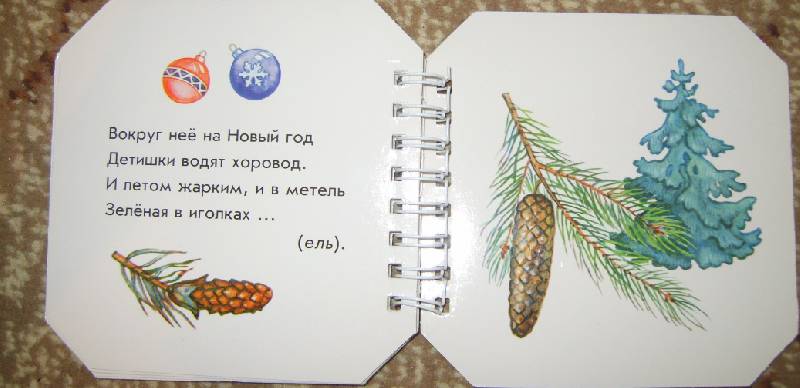 Вокруг неё на Новый год
Детишки водят хоровод.
И летом жарким, и в метель
Зелёная в иголках ...
(ель).